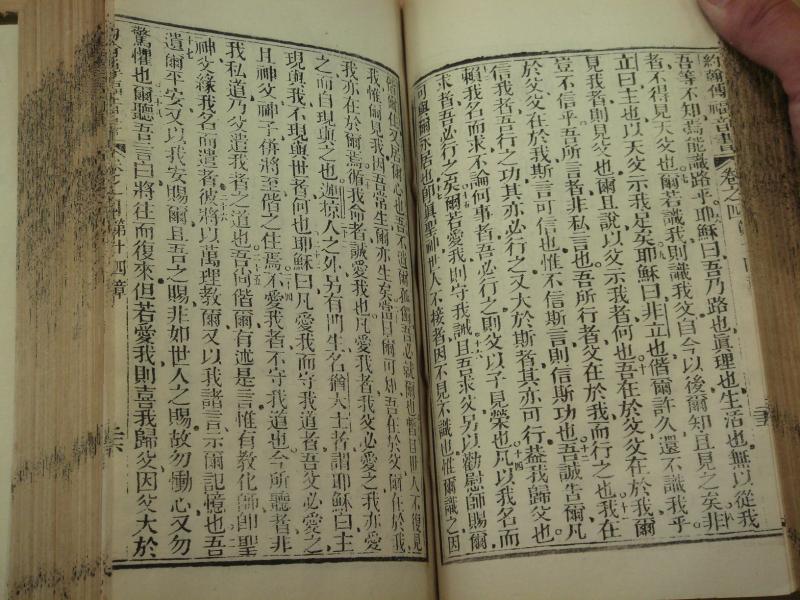 約翰傳福音書 卷之四
吾等不知焉能識路乎耶穌曰吾乃路也眞理也生活也無以從我
者不得見天父也爾若識我則識我父自今以後爾知且見之矣非
立曰主也以天父示我足矣耶穌曰非立也偕爾許久還不識我乎
見我者則見父也爾且說以父示我者何也吾在於父父在於我爾
豈不信乎吾所言者非私言也吾所行者父在於我而行之也我在
於父父在於我斯言可信也惟不信斯言則信斯功也吾誠告爾凡
信我者吾行之功其亦必行之又大於斯者其亦可行葢我歸父也
賴我名而求不論何事者吾必行之則父以子見榮也凡以我名而
求者吾必行之矣爾若愛我則守我誡且吾求父另以勸慰師賜爾
可與爾永居也即眞聖神世人不接者因不見不識也惟爾識之因
偕爾住又居爾心也吾不遺爾孤吾必就爾也暫且世人不復見
我惟爾見我因吾常生爾亦生矣當日爾可知吾在於父爾在於我
我亦在於爾焉循我命者誠愛我也凡愛我者我父必愛之我亦愛
之而自現與之也 人之外另有門生名猶大士者謂耶穌曰主
現與我不現與世者何也耶穌曰凡愛我而守我道者吾父必愛之
且神父神子併將至偕之住焉不愛我者不守我道也今所聽者非
我私道乃父遣我者之道也吾尚偕爾有述是言惟有教化師即聖
神父緣我名而遣者彼將以萬理教爾又以我諸言示爾記憶也吾
遺爾平安又以我安賜爾且吾之賜非如世人之賜故勿慟心又勿
驚懼也爾聽吾言曰將往而復來但若愛我則喜我歸父因父大於
第十四章